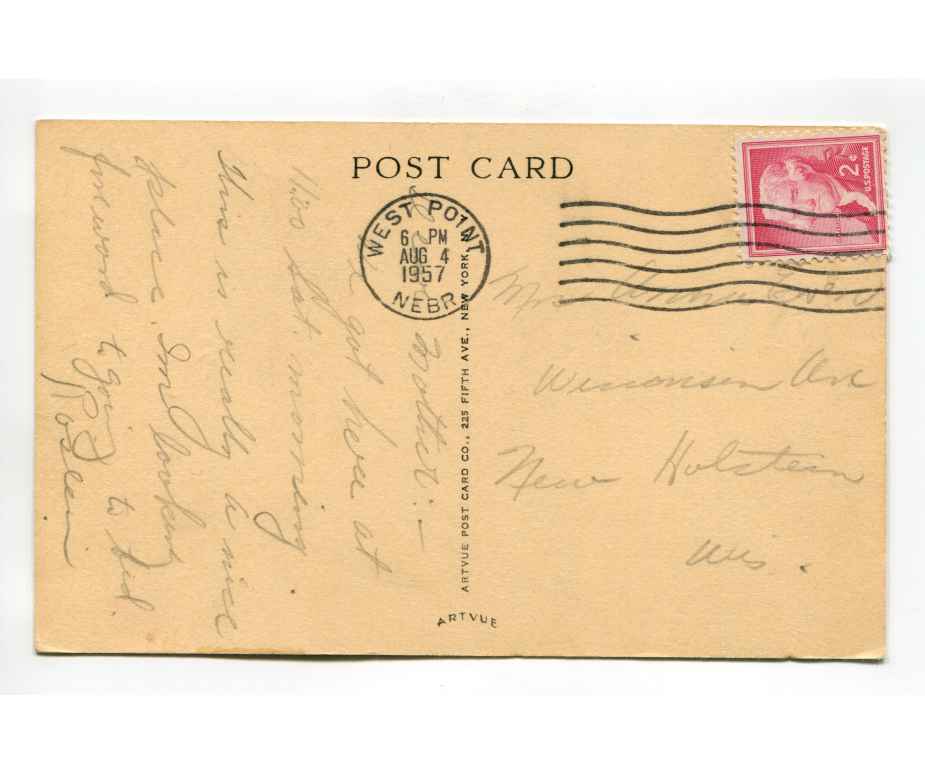 POST CARD
WEST POINT
6 PM
AUG 4
1957
NEBR
2¢
U.S. POSTAGE
ARTVUE POST CARD CO., 225 FIFTH AVE., NEW YORK,
ARTVUE
Mother:—
I got here at
this Sat. morning
This is really a nice
place. Im lookin
foreword to goin to bed.
Mrs
Wisconsin Ave
New Holstein
Wis.